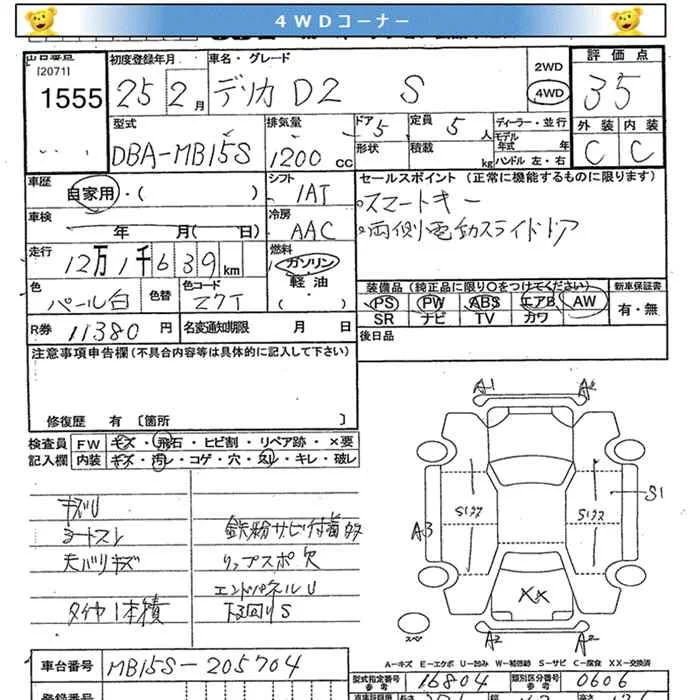 4WDコーナー
出品番号 初度登録年月 車名・グレード 2WD 4WD 評価点
[2071]
1555 25 2月 デリカ D2 S 3.5
型式 排気量 ドア 5 定員 5 人 ディーラー・並行 外装 内装
DBA-MB15S 1200 cc 形状 積載 kg モデル年式 年 C C
ハンドル 左・右
車歴 シフト セールスポイント (正常に機能するものに限ります)
自家用・( ) 1AT スマートキー
車検 冷房 両側電動スライドドア
年 月(日) AAC
走行 燃料
12万1千639km ガソリン
色 色替 色コード 軽油 装備品 (純正品に限り○をつけてください) 新車保証書
パール白 Z7T ・( ) PS PW ABS エアB AW 有・無
SR ナビ TV カワ
R券 11380円 名変通知期限 月 日 後日品
注意事項申告欄(不具合内容等は具体的に記入して下さい)
修復歴 有 [箇所 ]
検査員 FW キズ・飛石・ヒビ割・リペア跡・×要
記入欄 内装 キズ・汚レ・コゲ・穴・スレ・キレ・破レ
A1 A2
キズU
シートスレ 鉄粉サビ付着多 S1 S1
天バリキズ リップスポ欠 A3
エンドパネルU XX
タイヤ1本積 下回りS
スペ A2 A2
A-キズ E-エクボ U-凹み W-補修跡 S-サビ C-腐食 XX-交換済
車台番号 MB15S-205704 型式指定番号 参考 16804 類別区分番号 参考 0606
登録番号